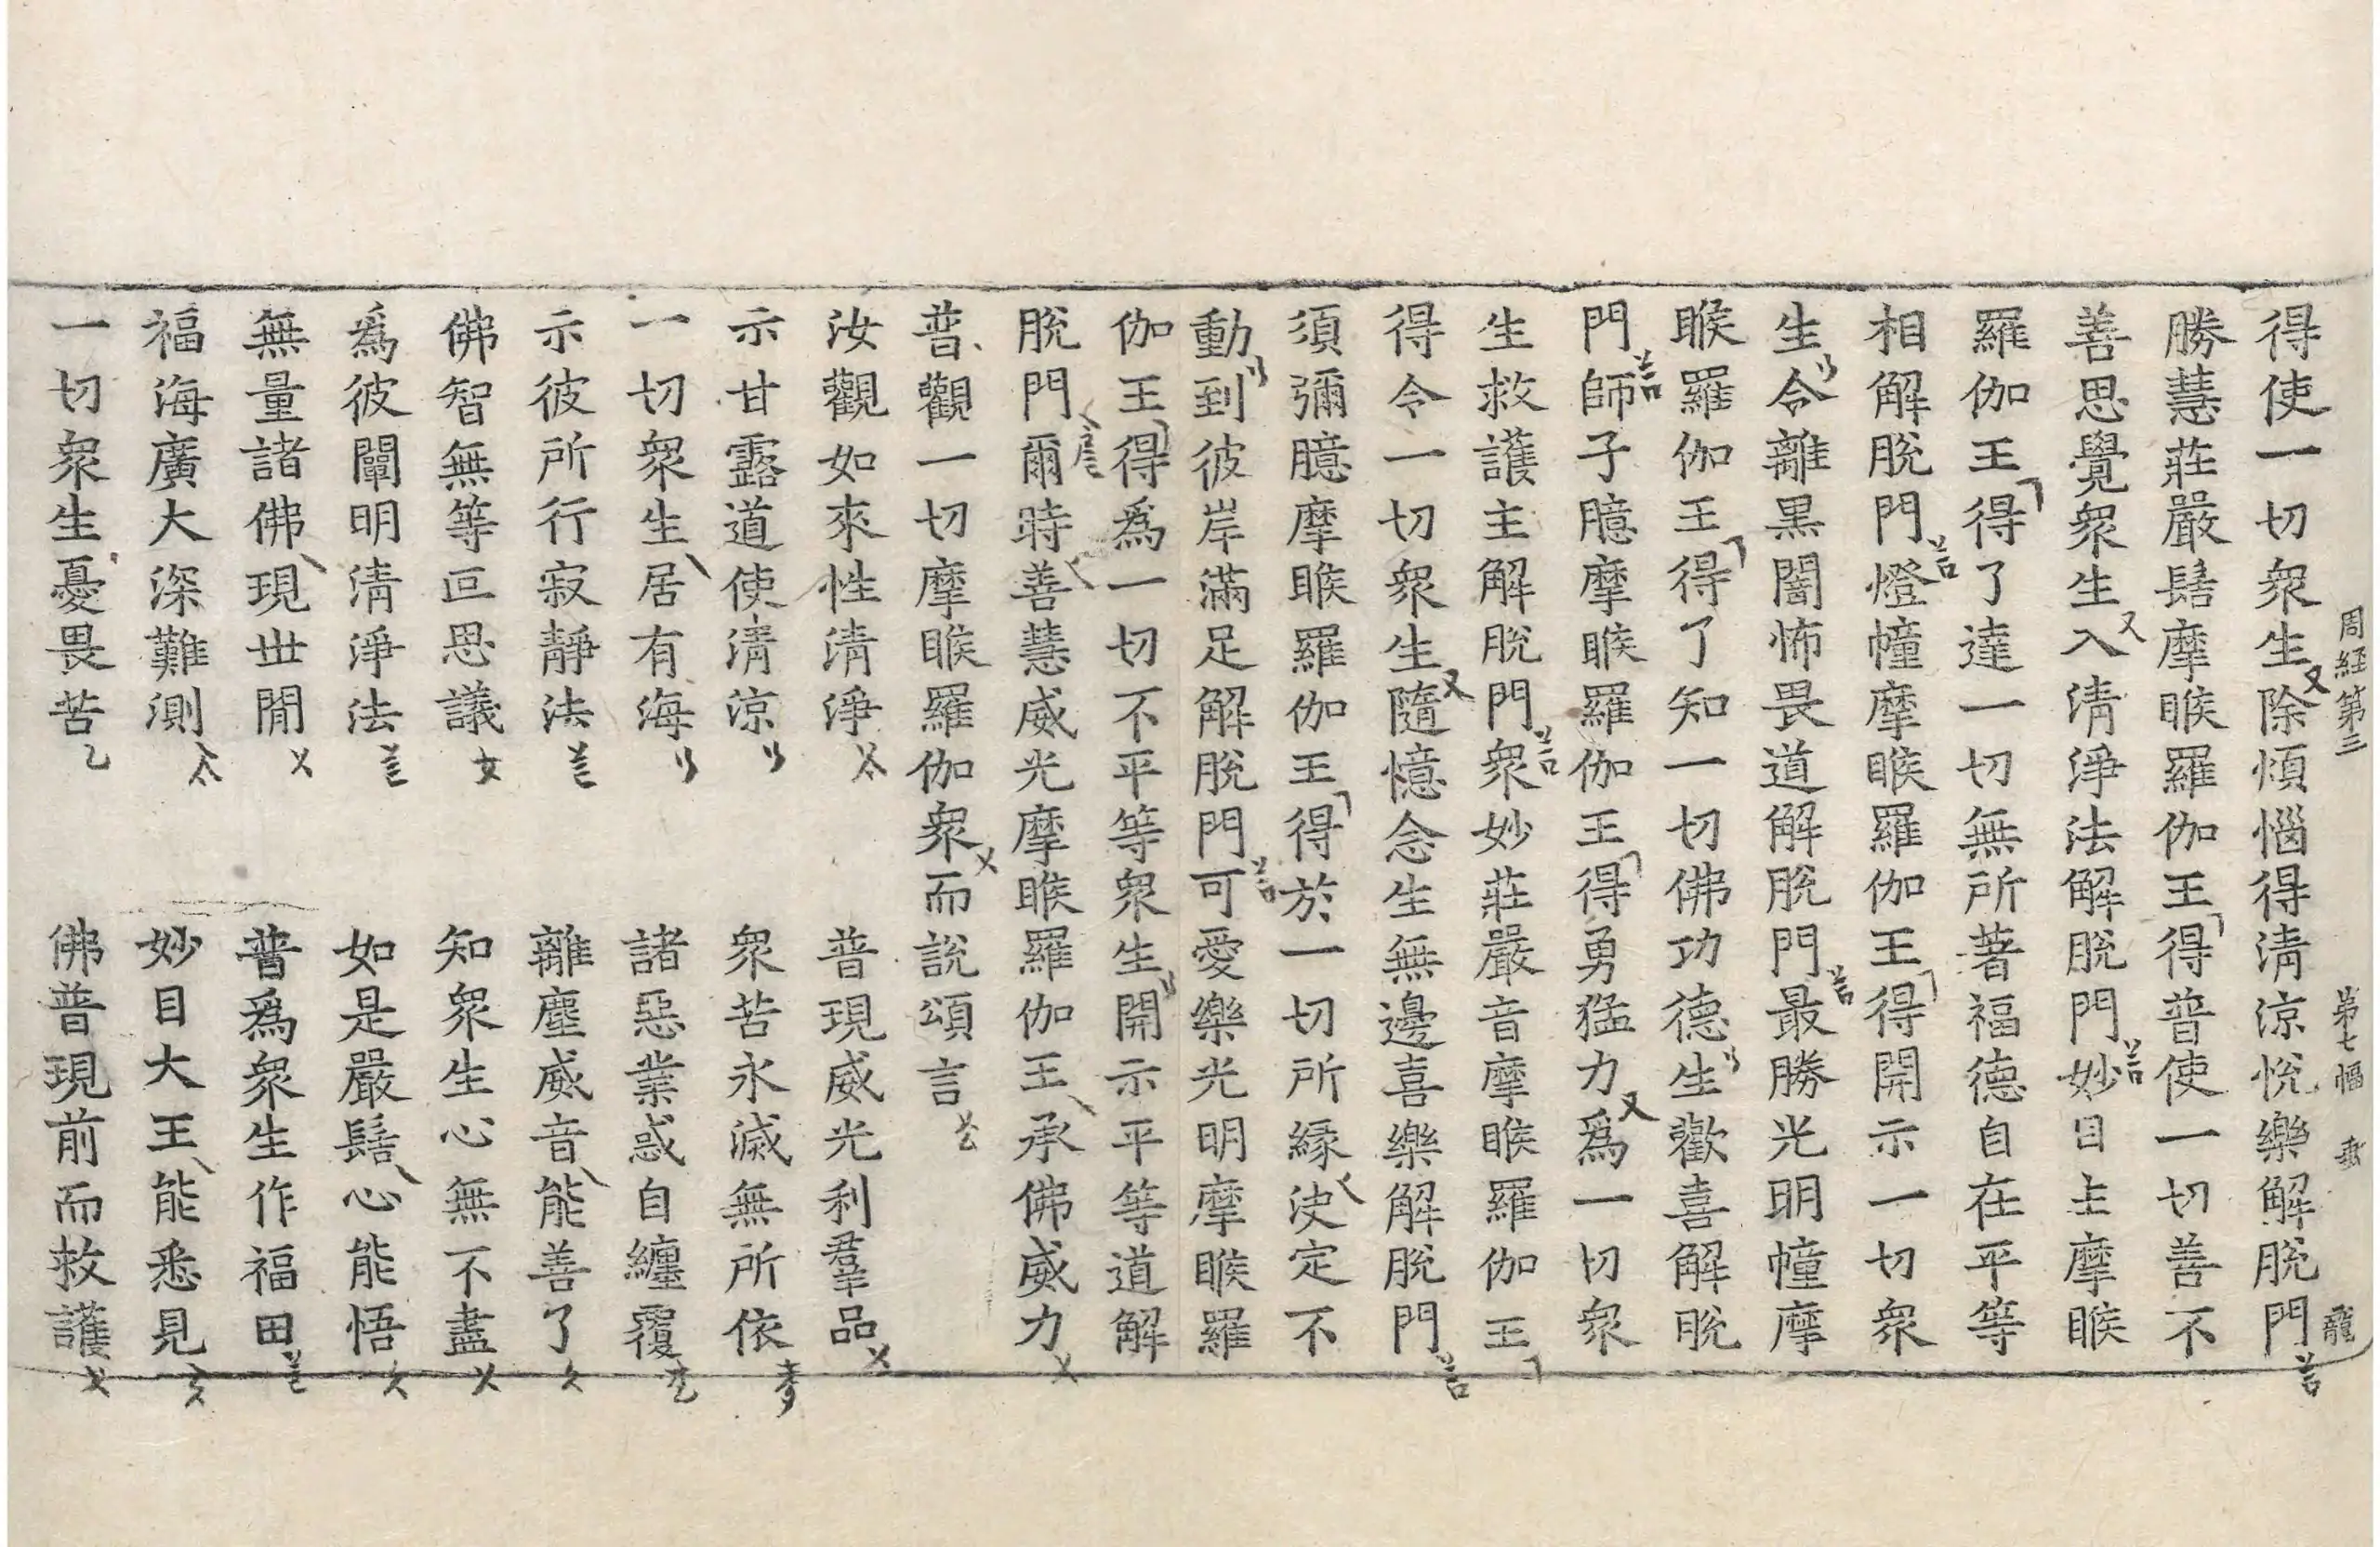 周經第三 第七幅 龍
得使一切衆生除煩惱得淸涼悅樂解脫門
勝慧莊嚴髻摩睺羅伽王得普使一切善不
善思覺衆生入淸淨法解脫門妙目主摩睺
羅伽王得了達一切無所著福德自在平等
相解脫門燈幢摩睺羅伽王得開示一切衆
生令離黑闇怖畏道解脫門最勝光明幢摩
睺羅伽王得了知一切佛功德生歡喜解脫
門師子臆摩睺羅伽王得勇猛力爲一切衆
生救護主解脫門衆妙莊嚴音摩睺羅伽王
得令一切衆生隨憶念生無邊喜樂解脫門
須彌臆摩睺羅伽王得於一切所緣決定不
動到彼岸滿足解脫門可愛樂光明摩睺羅
伽王得爲一切不平等衆生開示平等道解
脫門爾時善慧威光摩睺羅伽王承佛威力
普觀一切摩睺羅伽衆而說頌言
汝觀如來性淸淨 普現威光利羣品
示甘露道使淸涼 衆苦永滅無所依
一切衆生居有海 諸惡業惑自纏覆
示彼所行寂靜法 離塵威音能善了
佛智無等叵思議 知衆生心無不盡
爲彼闡明淸淨法 如是嚴髻心能悟
無量諸佛現世間 普爲衆生作福田
福海廣大深難測 妙目大王能悉見
一切衆生憂畏苦 佛普現前而救護